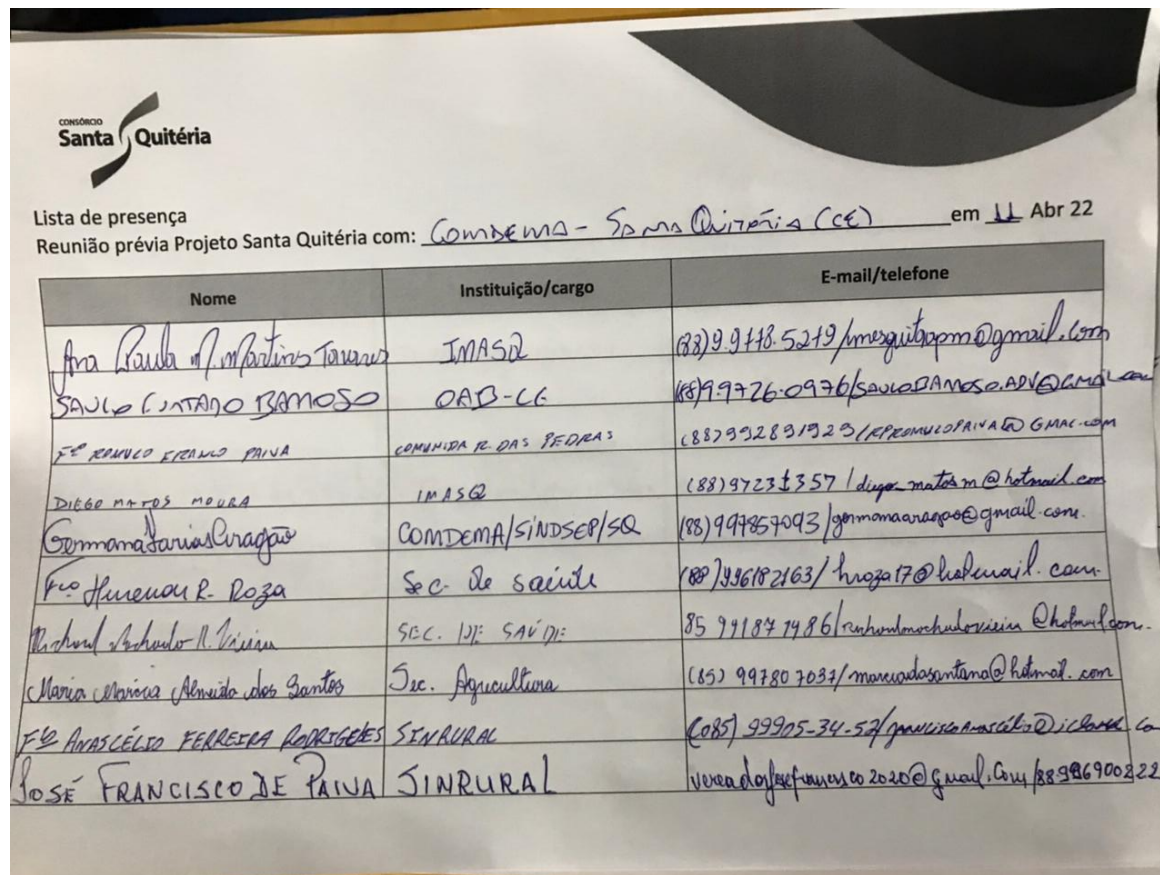 CONSÓRCIO
Santa Quitéria
Lista de presença
Reunião prévia Projeto Santa Quitéria com: COMDEMA - SANTA QUITÉRIA (CE) em 11 Abr 22
Nome Instituição/cargo E-mail/telefone
Ana Paula M. Martins Tavares IMASQ (88)9.9118.5219/mesquitapm@gmail.com
SAULO FURTADO BARROSO OAB-CE (88)9.9726-0976/SAULOBARROSO.ADV@GMAIL.com
Fco ROMULO FRANCO PAIVA COMUNIDA R. DAS PEDRAS (88)992891929/RPROMULOPAIVA@GMAL.COM
DIEGO MATOS MOURA IMASQ (88)97231357/diego_matosm@hotmail.com
Germana Farias Aragão COMDEMA/SINDSEP/SQ (88)997857093/germanaaragao@gmail.com.
Fco R. Roza Sec. de saúde (88)996182163/hroza17@hotmail.com.
Machado R. Vieira SEC. DE SAÚDE 85 991871986/
Maria Almeida dos Santos Sec. Agricultura (85) 997807037/
Fco ANASCÉLIO FERREIRA RODRIGUES SINRURAL (085) 99905-34-52/
JOSÉ FRANCISCO DE PAIVA SINRURAL vereadorjosefrancisco2020@gmail.com